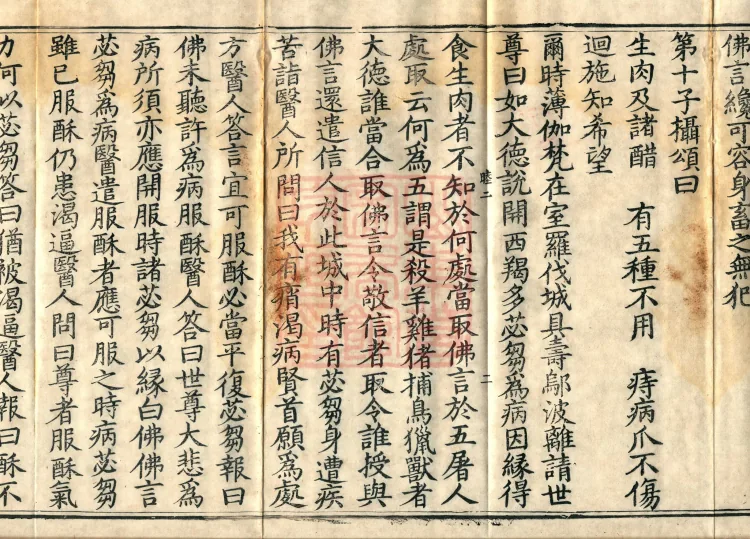 佛言纔可容身畜之無犯
第十子攝頌曰
生肉及諸醋　有五種不用　痔病爪不傷
迴施知希望
爾時薄伽梵在室羅伐城具壽鄔波離請世
尊曰如大德說開西羯多苾芻為病因緣得
睦二　二
食生肉者不知於何處當取佛言於五屠人
處取云何為五謂是殺羊雞猪捕鳥獵獸者
大德誰當合取佛言令敬信者取令誰授與
佛言還遣信人於此城中時有苾芻身遭疾
苦詣醫人所問曰我有痟渴病賢首願為處
方醫人答言宜可服酥必當平復苾芻報曰
佛未聽許為病服酥醫人答曰世尊大悲為
病所須亦應開服時諸苾芻以緣白佛佛言
苾芻為病醫遣服酥者應可服之時病苾芻
雖已服酥仍患渴逼醫人問曰尊者服酥氣
力可以苾芻答曰猶被渴逼醫人報曰酥不